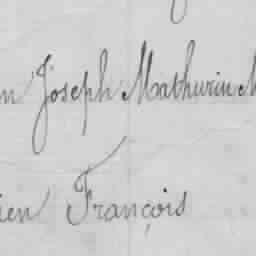 Joseph Mathurin
François